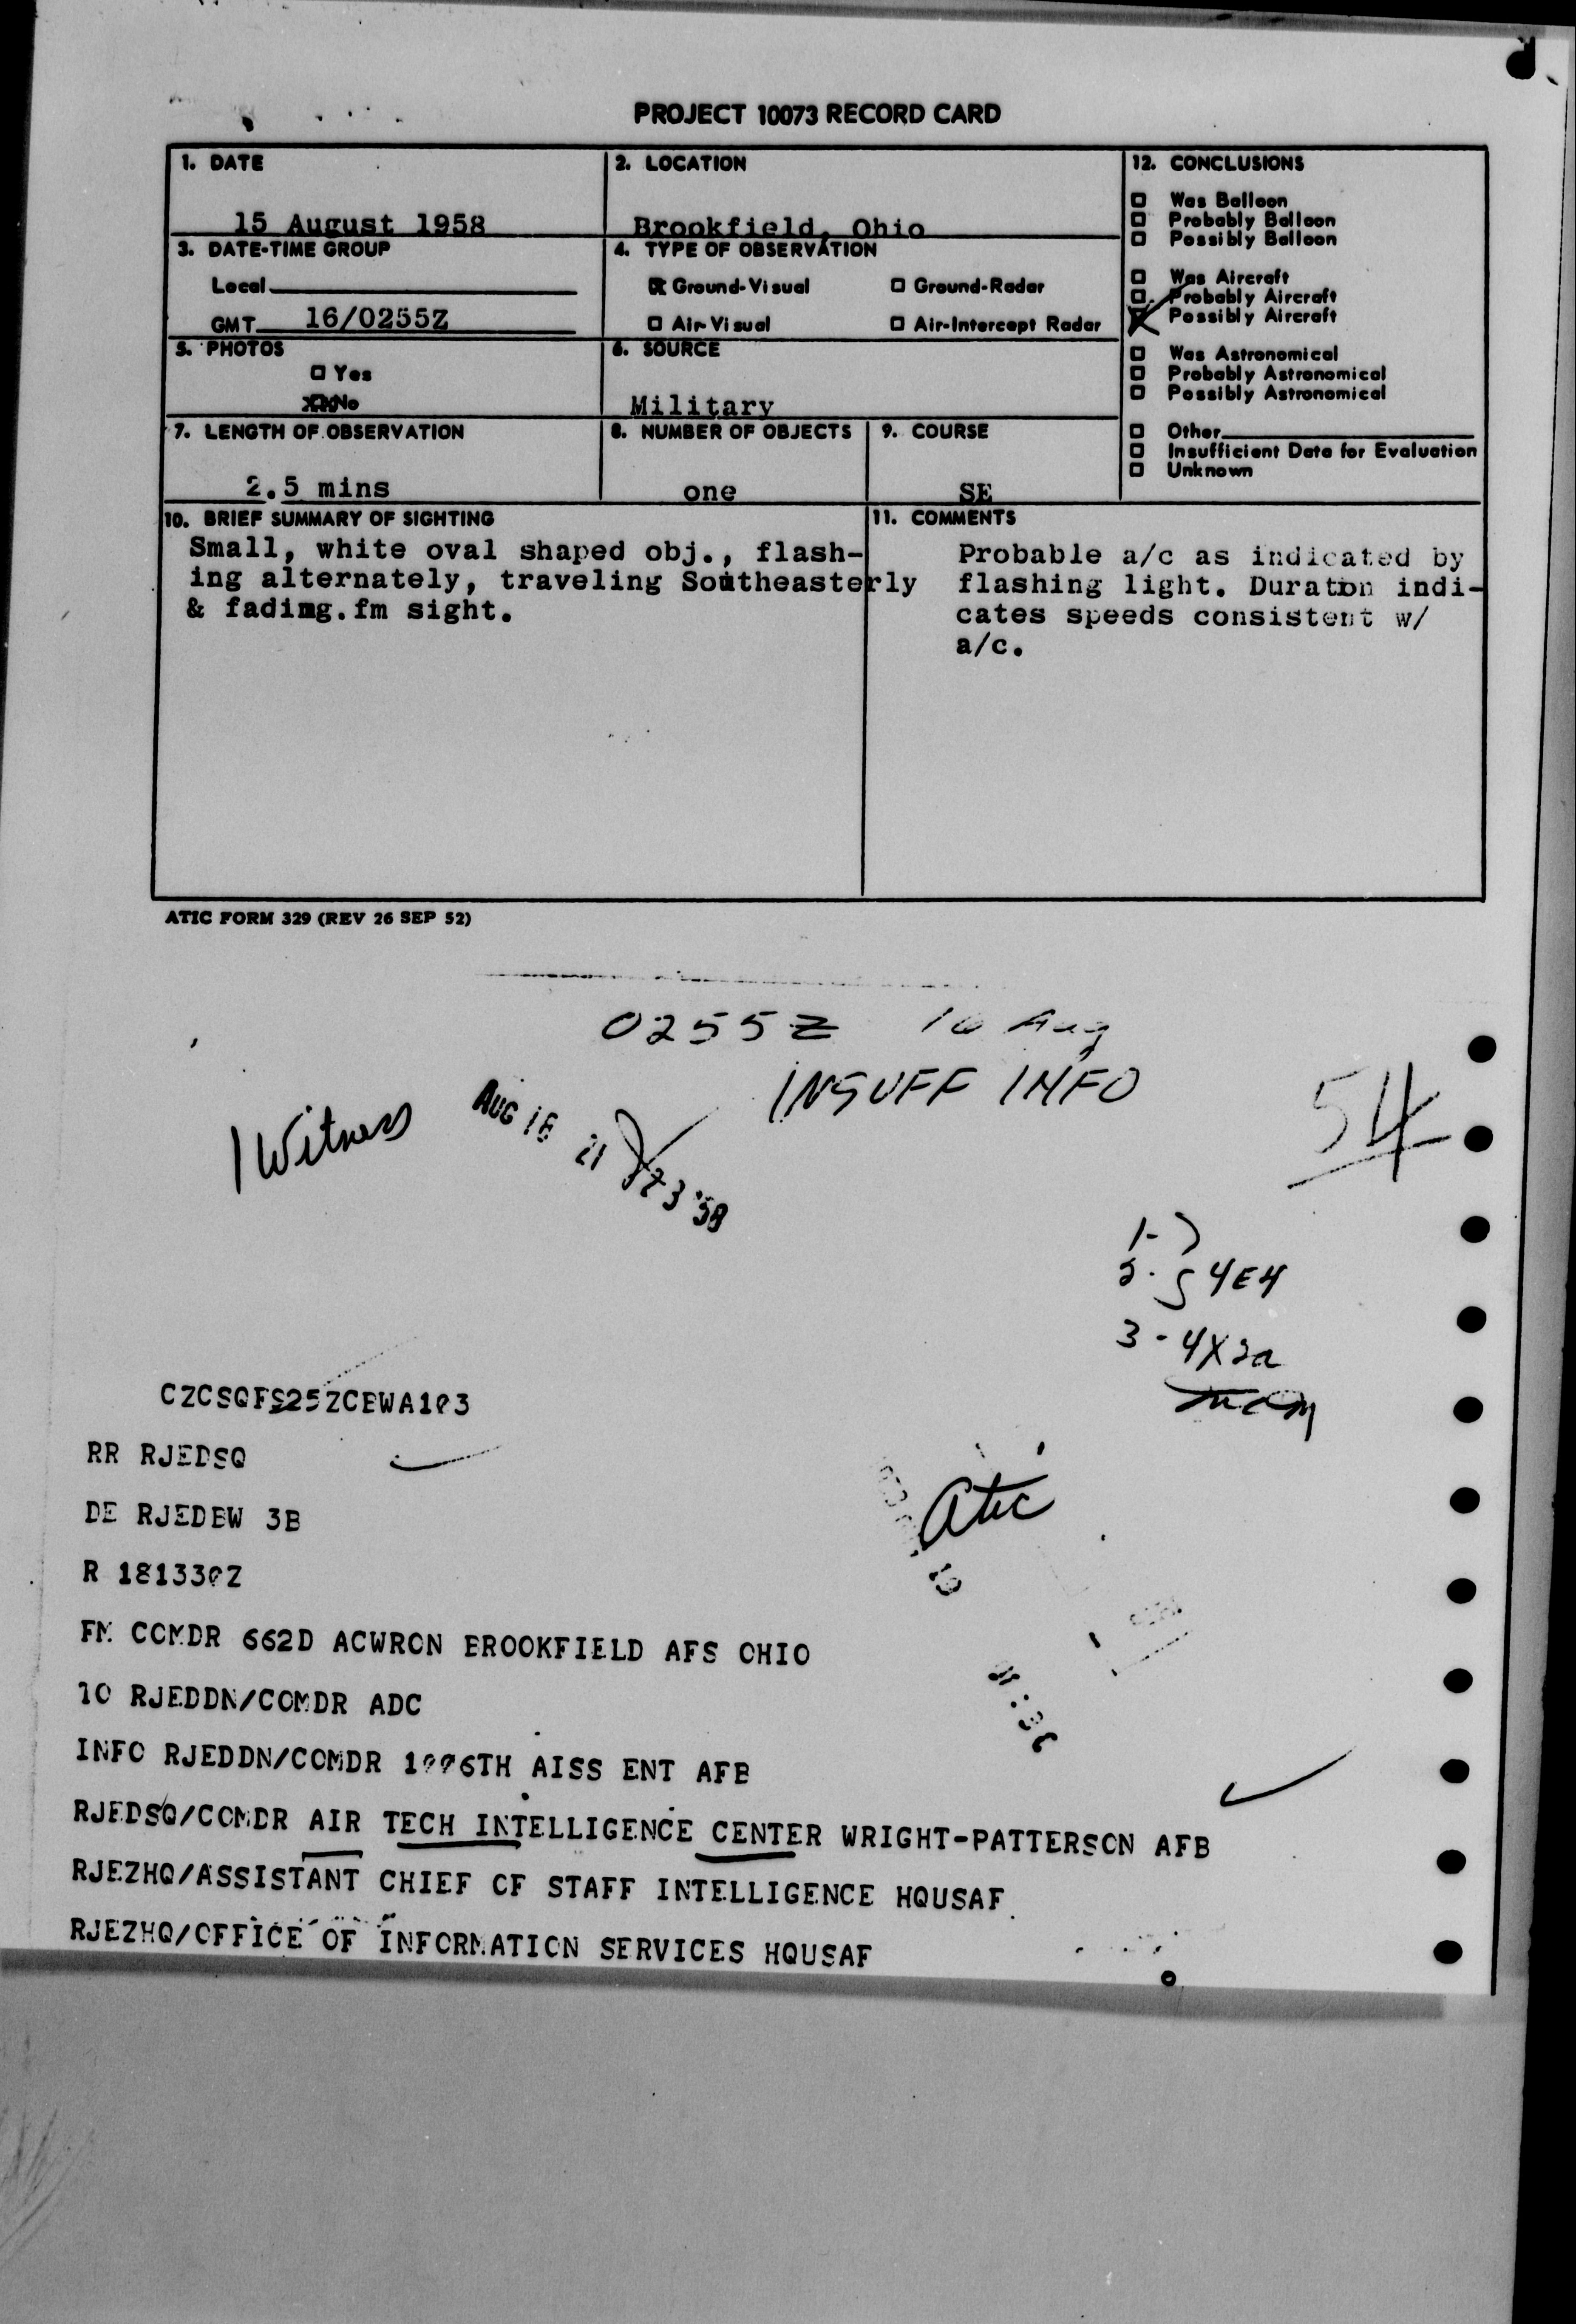 PROJECT 10073 RECORD CARD
1. DATE
15 August 1958
2. LOCATION
Brookfield, Ohio
3. DATE-TIME GROUP
Local
GMT 16/0255Z
4. TYPE OF OBSERVATION
Ground-Visual
Ground-Radar
Air-Visual
Air-Intercept Radar
5. PHOTOS
Yes
No
6. SOURCE
Military
7. LENGTH OF OBSERVATION
2.5 mins
8. NUMBER OF OBJECTS
one
9. COURSE
SE
12. CONCLUSIONS
Was Balloon
Probably Balloon
Possibly Balloon
Was Aircraft
Probably Aircraft
Possibly Aircraft
Was Astronomical
Probably Astronomical
Possibly Astronomical
Other
Insufficient Data for Evaluation
Unknown
10. BRIEF SUMMARY OF SIGHTING
Small, white oval shaped obj., flash-
ing alternately, traveling Southeasterly
& fading.fm sight.
11. COMMENTS
Probable a/c as indicated by
flashing light. Duration indi-
cates speeds consistent w/
a/c.
ATIC FORM 329 (REV 26 SEP 52)
0255Z 16 Aug
INSUFF INFO
1 Witness
AUG 18 21 '58
54
1-
2. 54E4
3 - 4X2a
atic
CZCSQFS25ZCBWA103
RR RJEDSQ
DE RJEDBW 3B
R 181330Z
FM COMDR 662D ACWRON BROOKFIELD AFS OHIO
TO RJEDDN/COMDR ADC
INFO RJEDDN/COMDR 1006TH AISS ENT AFB
RJEDSQ/COMDR AIR TECH INTELLIGENCE CENTER WRIGHT-PATTERSON AFB
RJEZHQ/ASSISTANT CHIEF OF STAFF INTELLIGENCE HQUSAF
RJEZHQ/OFFICE OF INFORMATION SERVICES HQUSAF